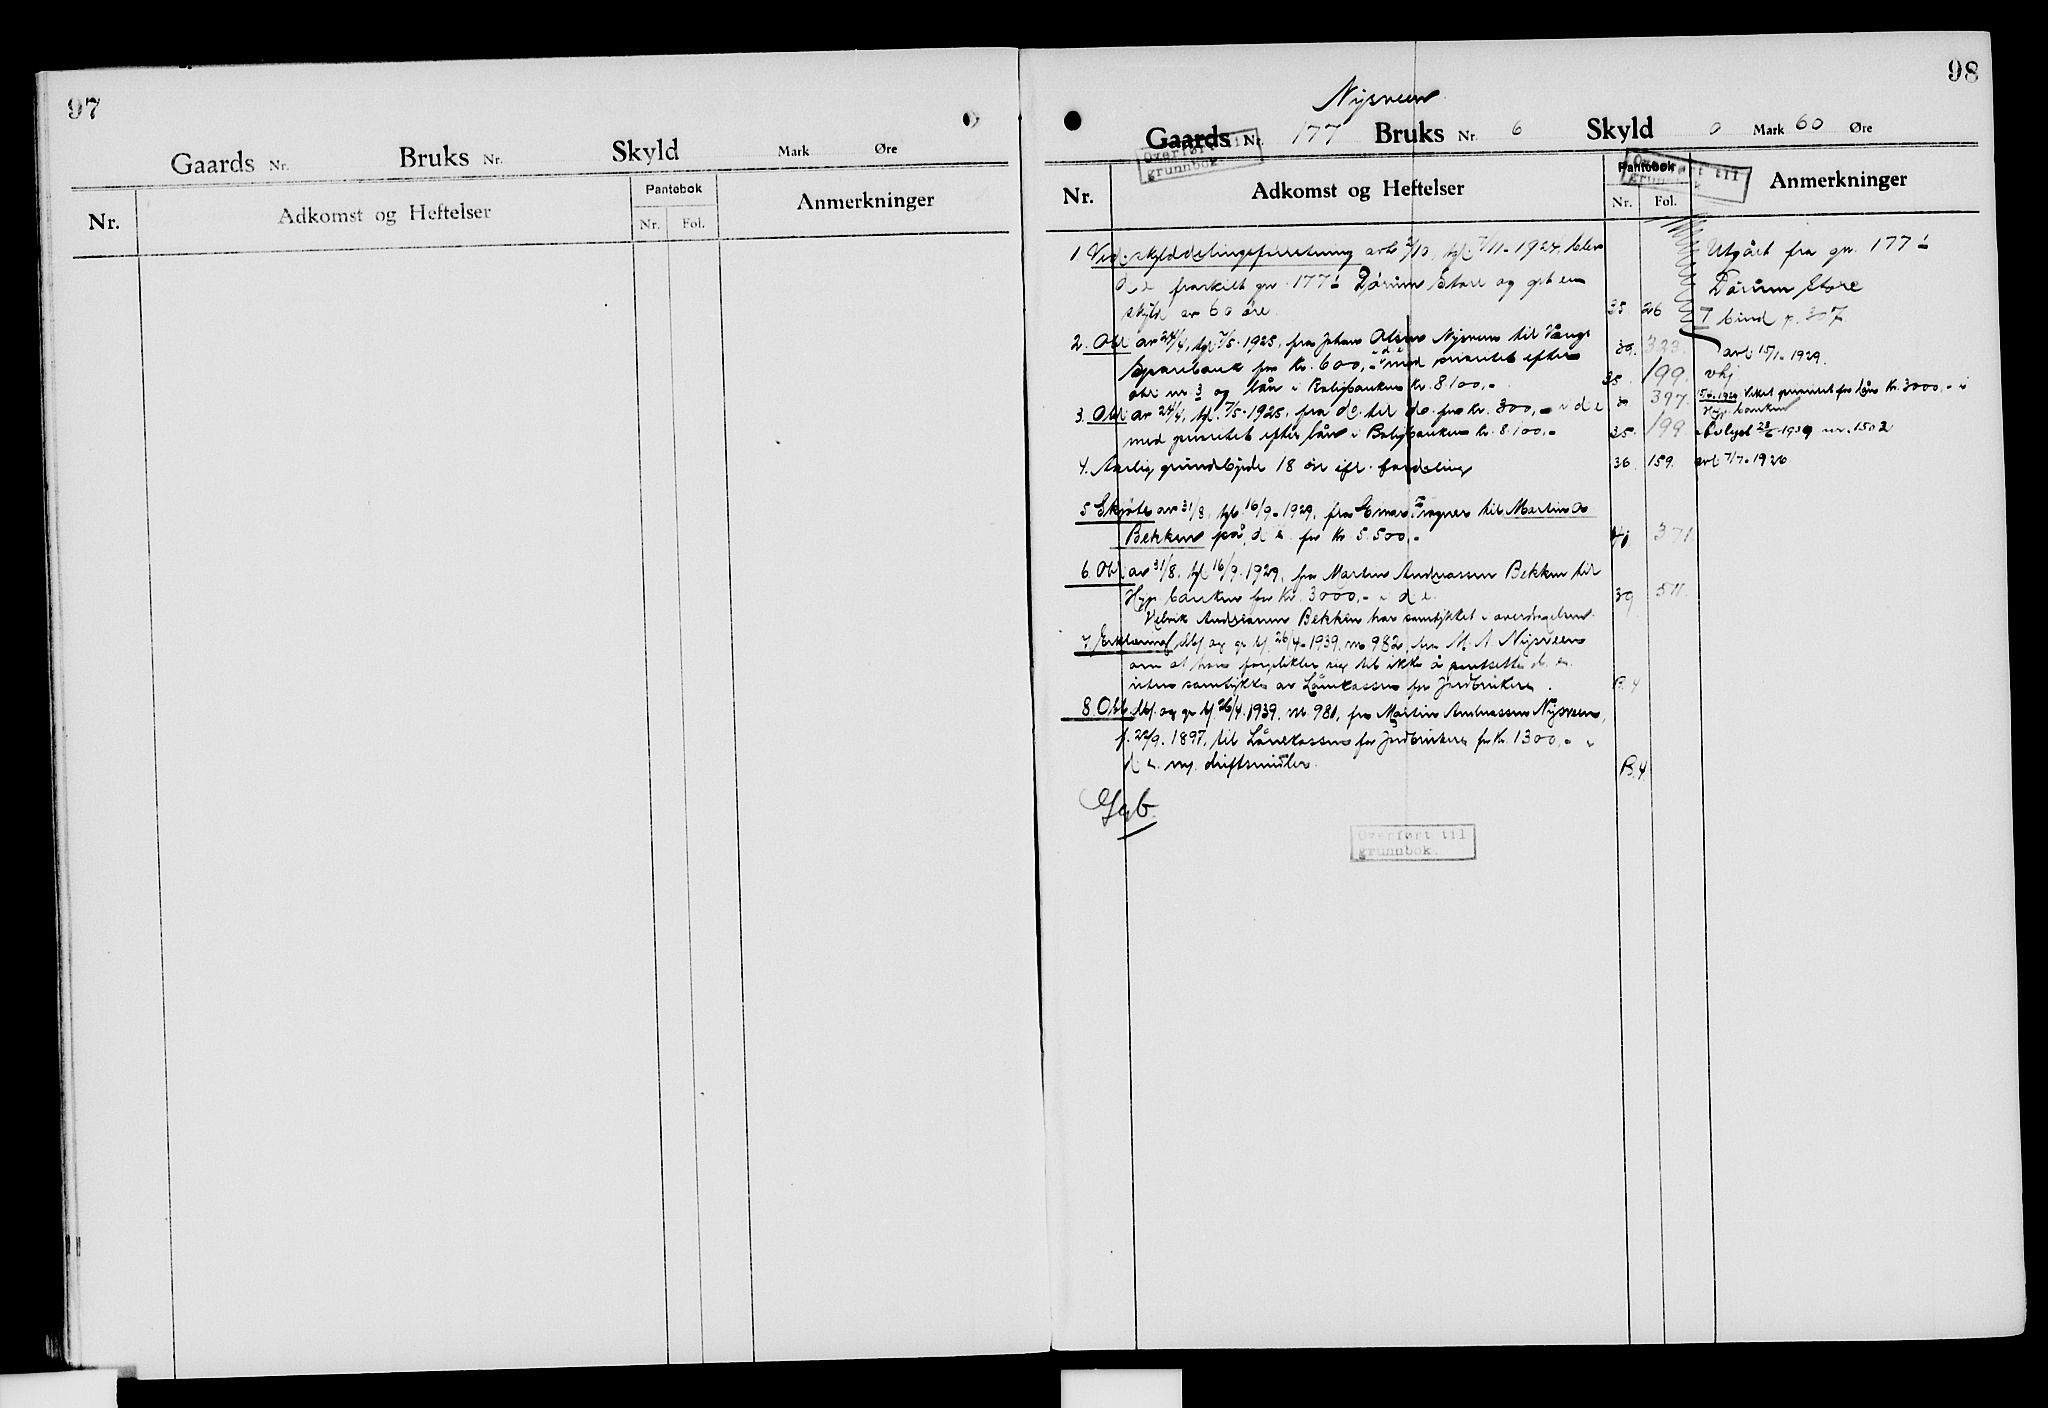 97
Gaards Nr. Bruks Nr. Skyld Mark Øre
Nr. Adkomst og Heftelser Pantebok Nr. Fol. Anmerkninger
98
Nysveen
Gaards Nr. 177 Bruks Nr. 6 Skyld 0 Mark 60 Øre
Overført til
grunnbok.
Overført til
grunnbok
Nr. Adkomst og Heftelser Pantebok Nr. Fol. Anmerkninger
1 Ved skylddelingsforretning avh. /10, tgl. 7/11-1924, blev Utgått fra gn. 177
d e fraskilt gn. 177 Dørum Store og gitt en Dørum Store
skyld av 60 øre. 35. 26 I bind p. 307
2. Obl. av 24/4, tgl. 7/5-1925, fra Johan Olsen Nysveen til Vangs 39. 323. avl. 15/1-1929.
Sparebank for kr. 600,- i d e med prioritet efter
obl. nr. 3 og lån i Boligbanken kr. 8.100,- 35. 199. vhj
397. 1929 Veket prioritet for lån kr. 3000,- i
Hyp. banken
3. Obl. av 24/4, tgl. 7/5-1925, fra do. til do. for kr. 300,- i d e
med prioritet efter lån i Boligbanken kr. 8.100,- 35. 199 Avlyst 23/6-1939 nr. 1502
4. Aarlig grundbyrde 18 øre ifl. fordeling 36. 159. avl. 7/7-1926
5 Skjøte av 31/8, tgl. 16/9-1929, fra Einar Fragner til Martin A.
Bekken på d e. for kr. 5.500,- 40 371.
6. Obl. av 31/8, tgl. 16/9-1929, fra Martin Andreassen Bekken til
Hyp. banken for kr. 3000,- i d e. 39 511.
Andreassen Bekken har samtykket i overdragelsen.
7. Erklæring dbf. og gr. tgl. 26/4-1939, nr. 982, fra M. A. Nysveen
om at han forplikter sig til ikke å pantsette d. e.
uten samtykke av Lånekassen for Jordbrukere. B. 4
8. Obl. dbf. og gr. tgl. 26/4-1939, nr. 981, fra Martin Andreassen Nysveen,
f. 22/9-1897, til Lånekassen for Jordbrukere for kr. 1300,- i
d e. m/ driftsmidler. B. 4.
Ggb.
Overført til
grunnbok.